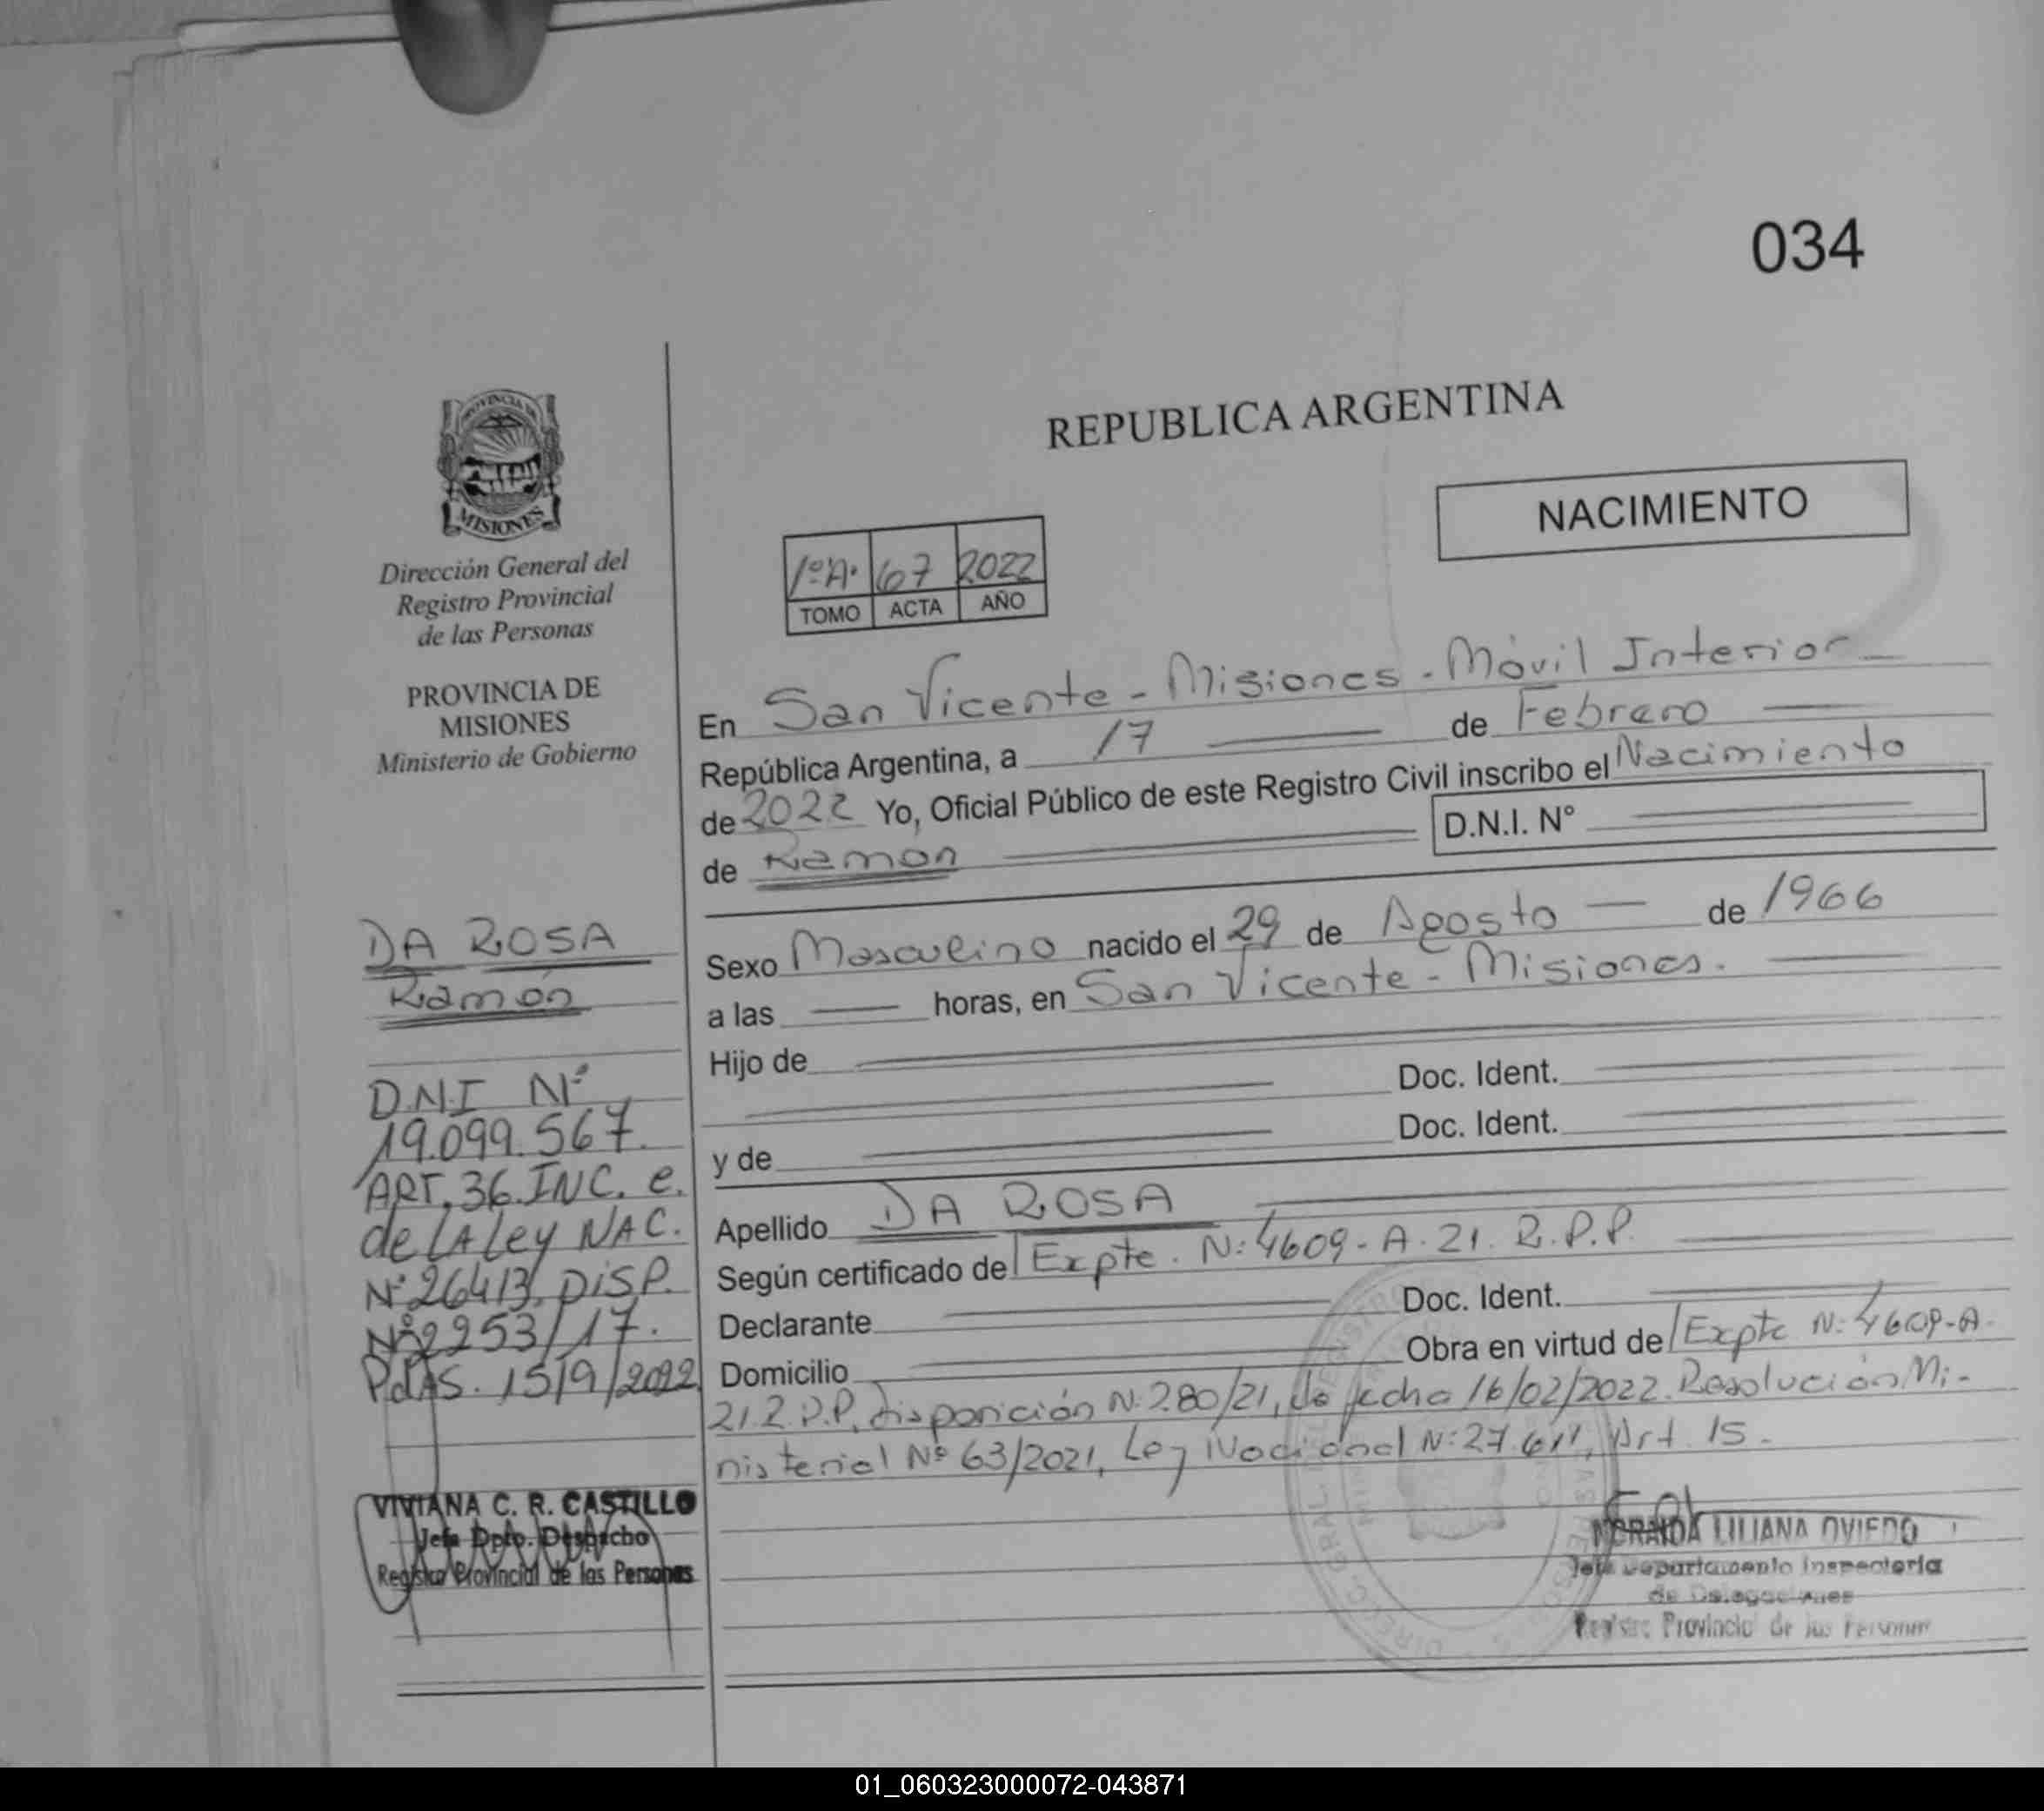 034
PROVINCIA DE
MISIONES
Dirección General del
Registro Provincial
de las Personas
PROVINCIA DE
MISIONES
Ministerio de Gobierno
DA ROSA
Ramón
D.N.I Nº
19.099.567.
ART. 36. INC. e.
de LA Ley NAC.
Nº 26413, DISP.
Nº 2253/17.
PdAS. 15/9/2022
VIVIANA C. R. CASTILLO
Jefa Dpto. Despacho
Registro Provincial de las Personas
REPUBLICA ARGENTINA
NACIMIENTO
1º A. 67 2022
TOMO ACTA AÑO
En San Vicente - Misiones - Móvil Interior
República Argentina, a 17 de Febrero
de 2022 Yo, Oficial Público de este Registro Civil inscribo el Nacimiento
de Ramón D.N.I. N°
Sexo Masculino nacido el 29 de Agosto de 1966
a las horas, en San Vicente - Misiones.
Hijo de
Doc. Ident.
y de Doc. Ident.
Apellido DA ROSA
Según certificado de Expte. N: 4609-A-21. R.P.P.
Declarante Doc. Ident.
Domicilio Obra en virtud de Expte N: 4609-A-
21.R.P.P, disposición N: 280/21, de fecha 16/02/2022. Resolución Mi-
nisterial Nº 63/2021, Ley Nacional N: 27.611, Art 15.
NORAIDA LILIANA OVIEDO
Jefa Departamento Inspectoria
de Delegaciones
Registro Provincial de las Personas
01_060323000072-043871